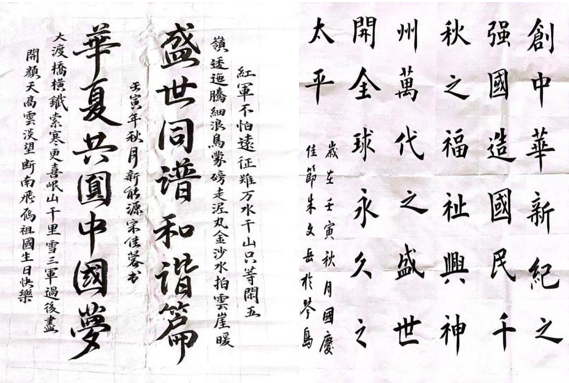 創中華新紀之
强國造國民千
秋之福祉興神
州萬代之盛世
開全球永久之
太平
歲在壬寅秋月國慶
佳節朱文岳於琴島
紅軍不怕遠征難万水千山只等閒五
嶺逶迤騰細浪烏蒙磅走泥丸金沙水拍雲崖暖
盛世同譜和谐篇
壬寅年秋月新能源宋佳蓉书
華夏共圓中國夢
大渡橋橫鐵索寒更喜岷山千里雪三軍過後盡
開顏天高雲淡望断南飛雁祖國生日快樂